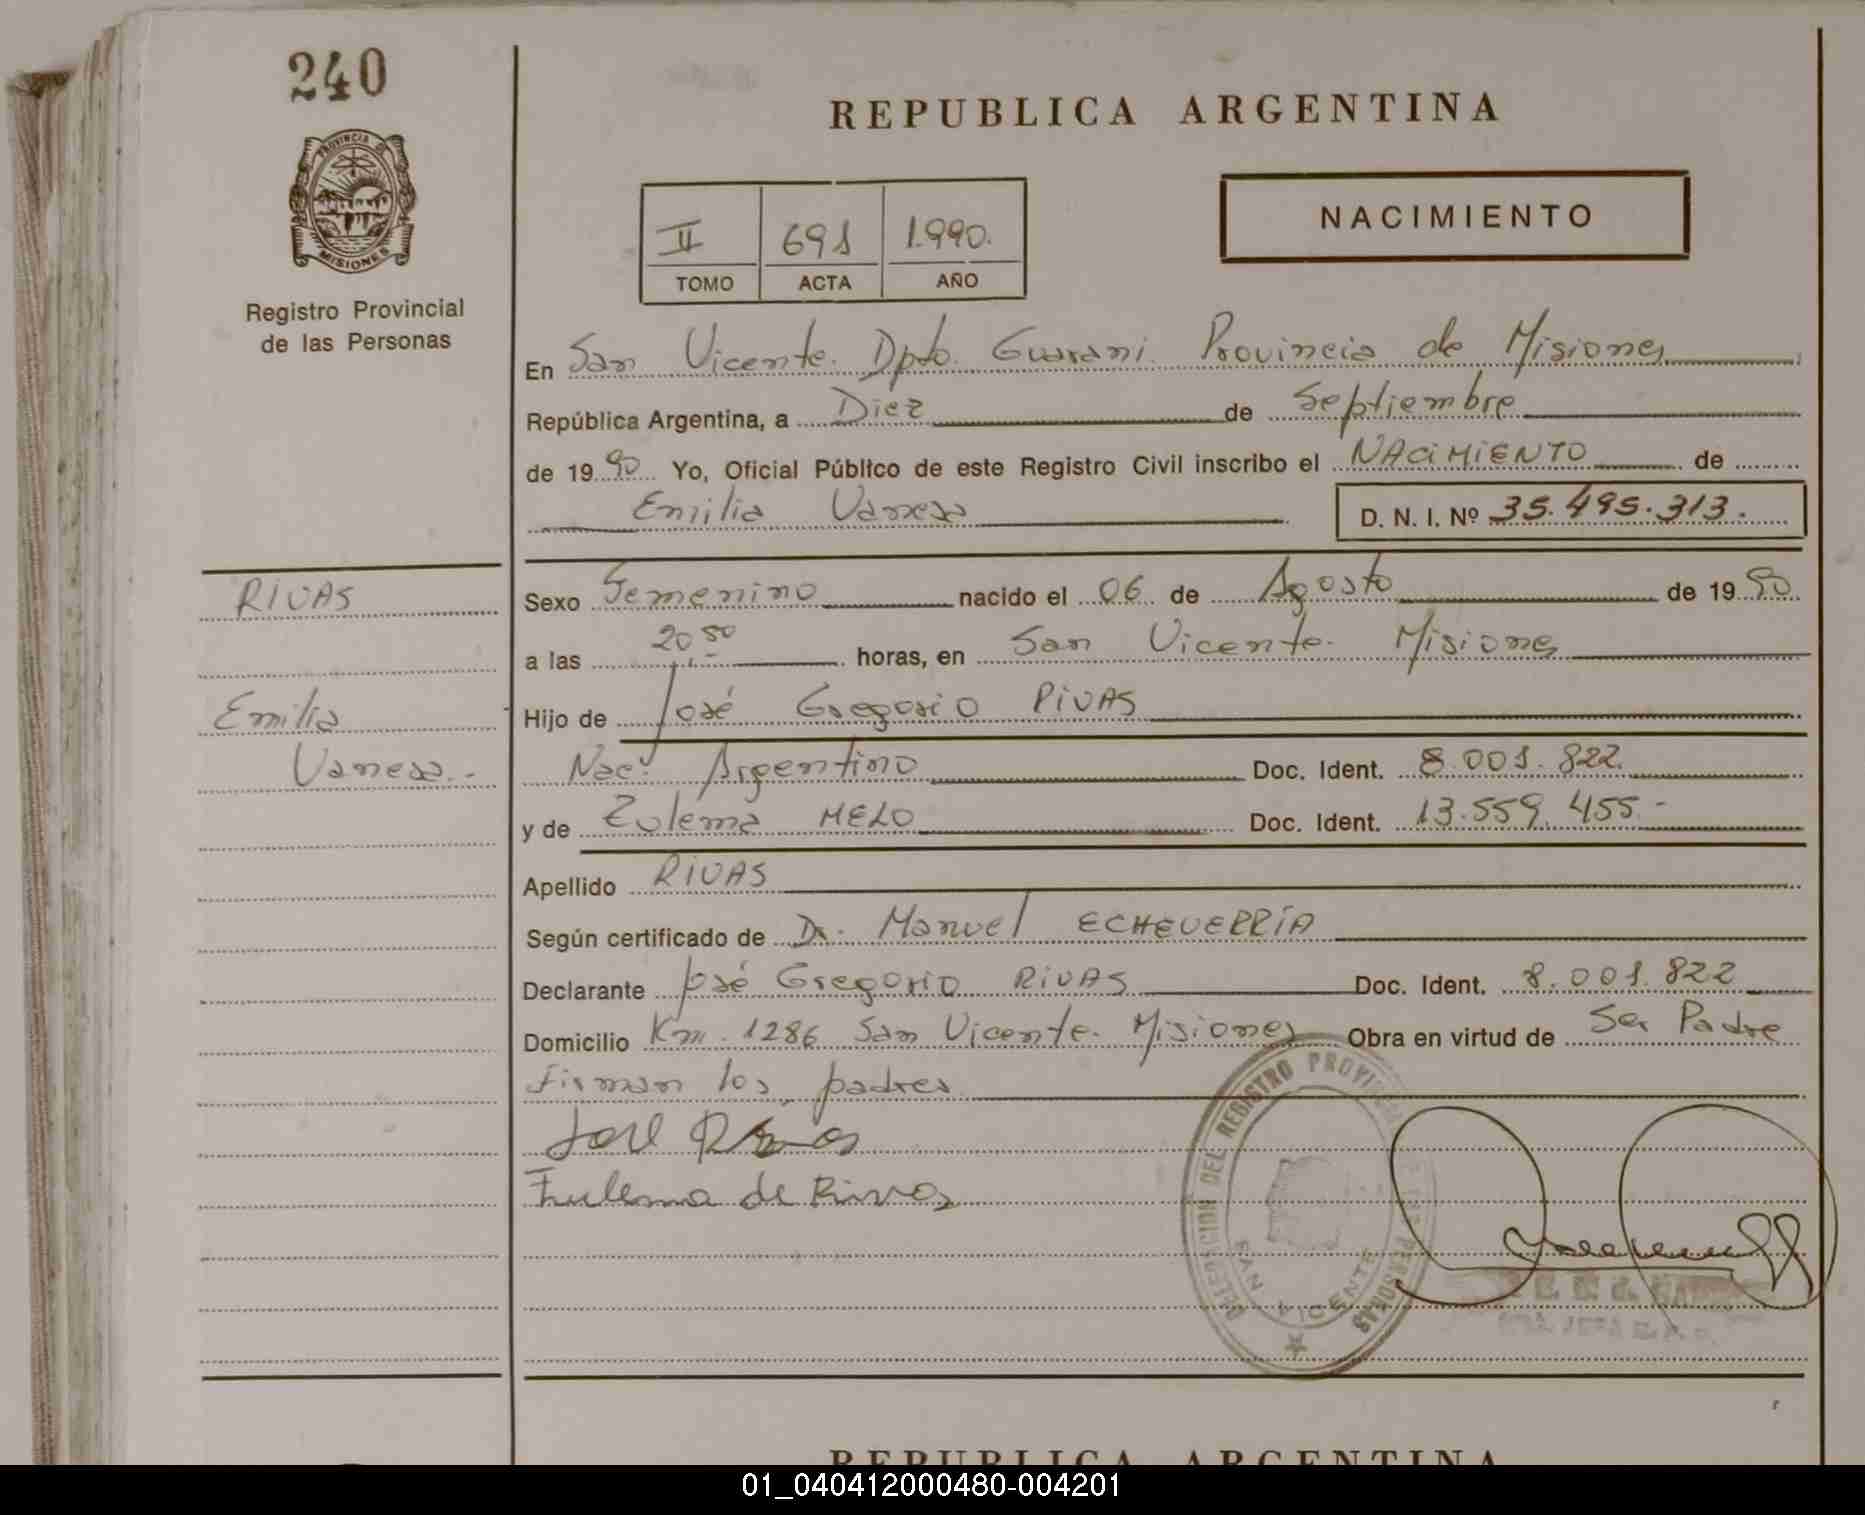 240
PROVINCIA DE
MISIONES
Registro Provincial
de las Personas
REPUBLICA ARGENTINA
NACIMIENTO
II 691 1.990.
TOMO ACTA AÑO
En San Vicente. Dpto. Guarani. Provincia de Misiones
República Argentina, a Diez de Septiembre
de 1990 Yo, Oficial Público de este Registro Civil inscribo el NACIMIENTO de
Emilia Vanesa D. N. I. Nº 35.495.313.
RIVAS
Emilia
Vanesa.-
Sexo Femenino nacido el 06 de Agosto de 1990
a las 20 50 horas, en San Vicente. Misiones
Hijo de José Gregorio RIVAS
Nac. Argentino Doc. Ident. 8.001.822.
y de Zulema MELO Doc. Ident. 13.559.455.-
Apellido RIVAS
Según certificado de Dr. Manuel ECHEVERRÍA
Declarante José Gregorio RIVAS Doc. Ident. 8.001.822
Domicilio Km. 1286 San Vicente. Misiones Obra en virtud de Ser Padre
Firman los padres
José Rivas
Zulema de Rivas
DELEGACION DEL REGISTRO PROVINCIAL DE LAS PERSONAS
SAN VICENTE
REPUBLICA ARGENTINA
01_040412000480-004201